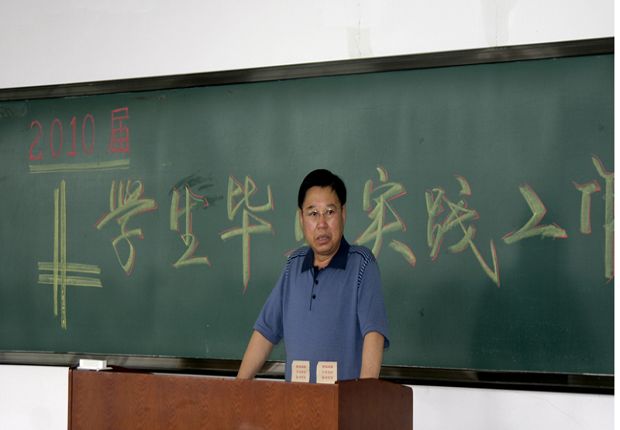 2010届
学生毕 实践工作